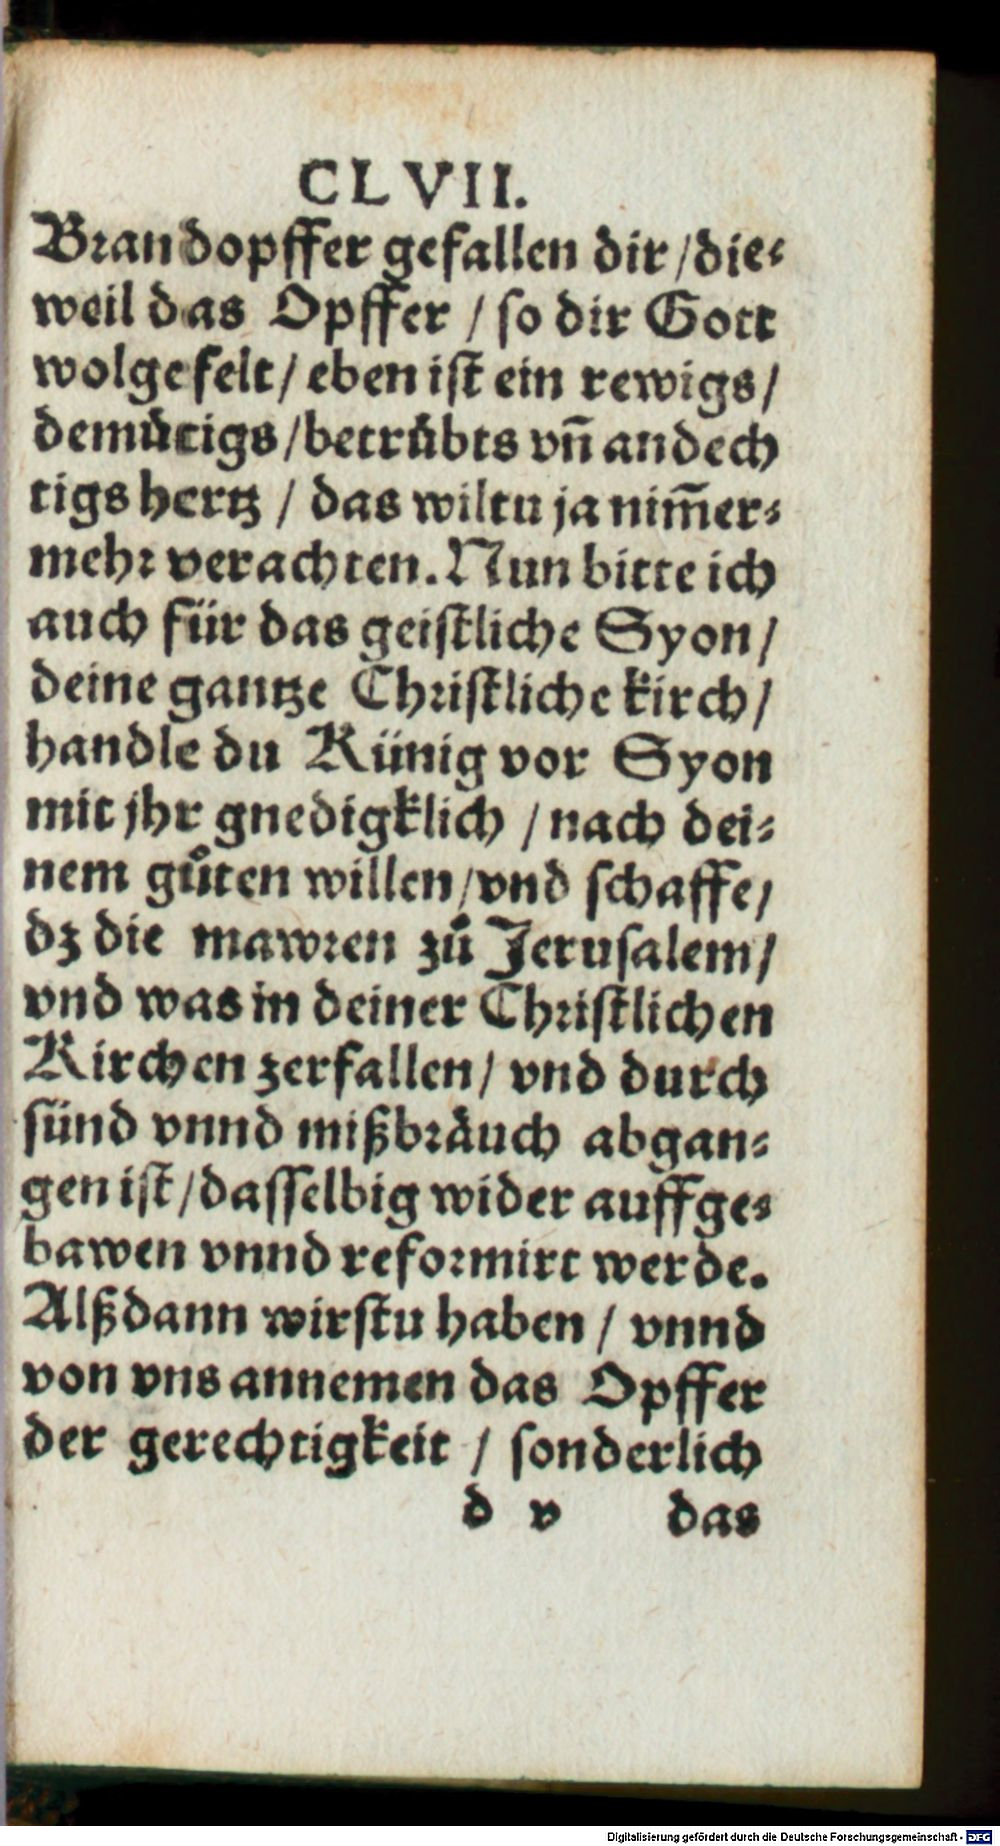 CLVII.
Brandopffer gefallen dir / die⸗
weil das Opffer / so dir Gott
wolgefelt / eben ist ein rewigs /
demuͤtigs / betruͤbts vn̄ andech
tigs hertz / das wiltu ja nim̄er⸗
mehr verachten. Nun bitte ich
auch für das geistliche Syon /
deine gantze Christliche kirch /
handle du Künig vor Syon
mit jhr gnedigklich / nach dei⸗
nem guͦten willen / vnd schaffe /
dz die mawren zuͦ Jerusalem /
vnd was in deiner Christlichen
Kirchen zerfallen / vnd durch
sünd vnnd mißbraͤuch abgan⸗
gen ist / dasselbig wider auffge⸗
bawen vnnd reformirt werde.
Alßdann wirstu haben / vnnd
von vns annemen das Opffer
der gerechtigkeit / sonderlich
d v das
Digitalisierung gefördert durch die Deutsche Forschungsgemeinschaft - DFG